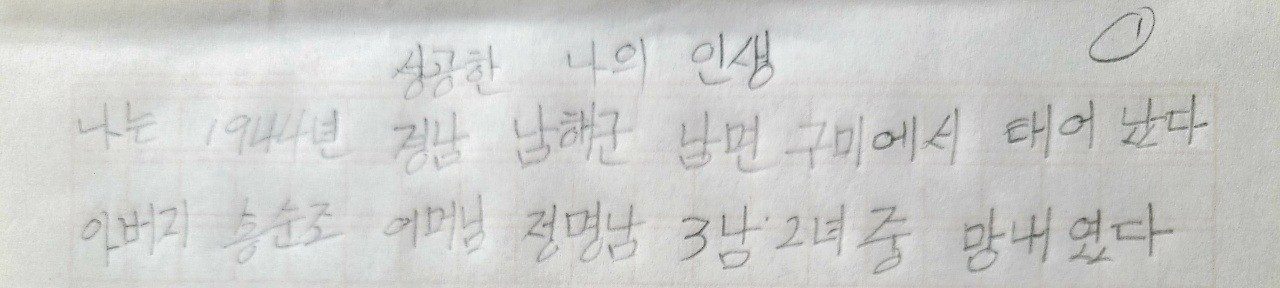 ①
성공한 나의 인생
나는 1944년 경남 남해군 남면 구미에서 태어 났다
아버지 송순조 어머님 정명남 3남 2녀 중 망내 였다